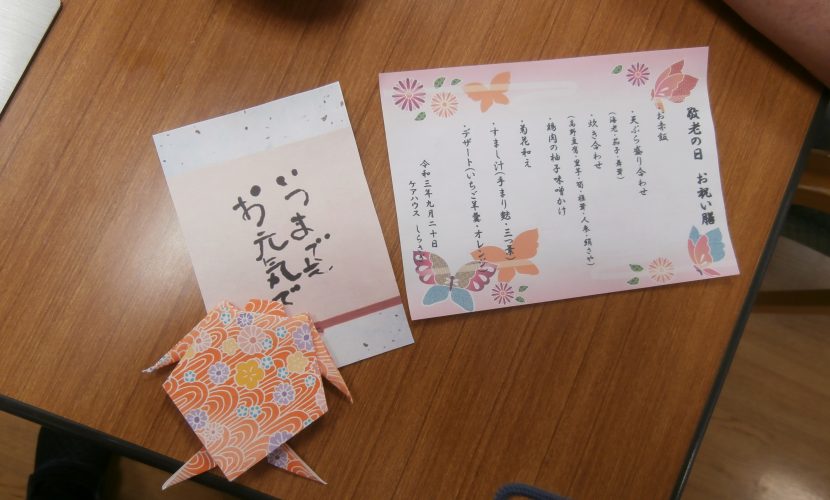 敬老の日　お祝い膳
・お赤飯
・天ぷら盛り合わせ
(海老・茄子・舞茸)
・炊き合わせ
(高野豆腐・里芋・筍・椎茸・人参・絹さや)
・鶏肉の柚子味噌かけ
・菊花和え
・すまし汁(手まり麩・三つ葉)
・デザート(いちご羊羹・オレンジ)
令和三年九月二十日
ケアハウス
いつまでも
お元気で